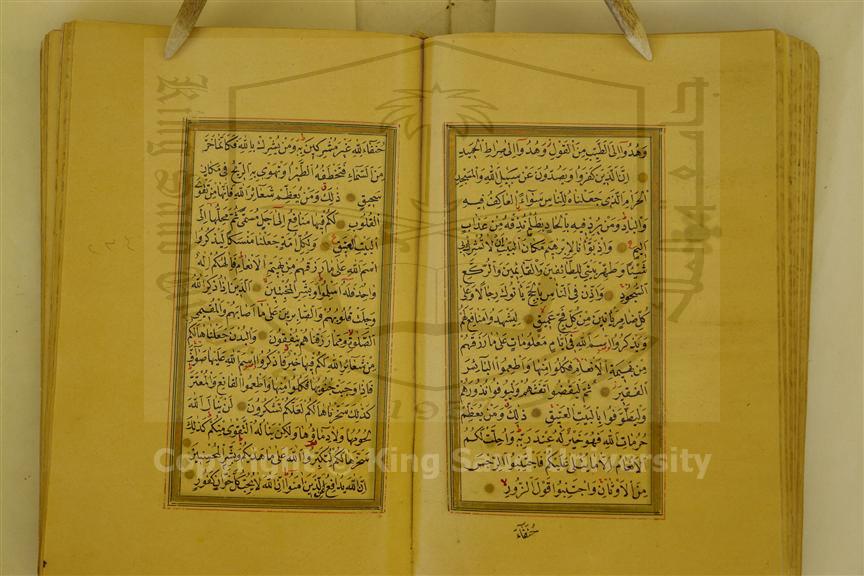 وَهُدُوا إِلَى الطَّيِّبِ مِنَ الْقَوْلِ وَهُدُوا إِلَى صِرَاطِ الْحَمِيدِ
إِنَّ الَّذِينَ كَفَرُوا وَيَصُدُّونَ عَنْ سَبِيلِ اللَّهِ وَالْمَسْجِدِ
الْحَرَامِ الَّذِي جَعَلْنَاهُ لِلنَّاسِ سَوَاءً الْعَاكِفُ فِيهِ
وَالْبَادِ وَمَنْ يُرِدْ فِيهِ بِإِلْحَادٍ بِظُلْمٍ نُذِقْهُ مِنْ عَذَابٍ
أَلِيمٍ وَإِذْ بَوَّأْنَا لِإِبْرَاهِيمَ مَكَانَ الْبَيْتِ أَنْ لَا تُشْرِكْ بِي
شَيْئًا وَطَهِّرْ بَيْتِيَ لِلطَّائِفِينَ وَالْقَائِمِينَ وَالرُّكَّعِ
السُّجُودِ وَأَذِّنْ فِي النَّاسِ بِالْحَجِّ يَأْتُوكَ رِجَالًا وَعَلَى
كُلِّ ضَامِرٍ يَأْتِينَ مِنْ كُلِّ فَجٍّ عَمِيقٍ لِيَشْهَدُوا مَنَافِعَ لَهُمْ
وَيَذْكُرُوا اسْمَ اللَّهِ فِي أَيَّامٍ مَعْلُومَاتٍ عَلَى مَا رَزَقَهُمْ
مِنْ بَهِيمَةِ الْأَنْعَامِ فَكُلُوا مِنْهَا وَأَطْعِمُوا الْبَائِسَ
الْفَقِيرَ ثُمَّ لْيَقْضُوا تَفَثَهُمْ وَلْيُوفُوا نُذُورَهُمْ
وَلْيَطَّوَّفُوا بِالْبَيْتِ الْعَتِيقِ ذَلِكَ وَمَنْ يُعَظِّمْ
حُرُمَاتِ اللَّهِ فَهُوَ خَيْرٌ لَهُ عِنْدَ رَبِّهِ وَأُحِلَّتْ لَكُمُ
الْأَنْعَامُ إِلَّا مَا يُتْلَى عَلَيْكُمْ فَاجْتَنِبُوا الرِّجْسَ
مِنَ الْأَوْثَانِ وَاجْتَنِبُوا قَوْلَ الزُّورِ
حُنَفَاءَ
حُنَفَاءَ لِلَّهِ غَيْرَ مُشْرِكِينَ بِهِ وَمَنْ يُشْرِكْ بِاللَّهِ فَكَأَنَّمَا خَرَّ
مِنَ السَّمَاءِ فَتَخْطَفُهُ الطَّيْرُ أَوْ تَهْوِي بِهِ الرِّيحُ فِي مَكَانٍ
سَحِيقٍ ذَلِكَ وَمَنْ يُعَظِّمْ شَعَائِرَ اللَّهِ فَإِنَّهَا مِنْ تَقْوَى
الْقُلُوبِ لَكُمْ فِيهَا مَنَافِعُ إِلَى أَجَلٍ مُسَمًّى ثُمَّ مَحِلُّهَا إِلَى
الْبَيْتِ الْعَتِيقِ وَلِكُلِّ أُمَّةٍ جَعَلْنَا مَنْسَكًا لِيَذْكُرُوا
اسْمَ اللَّهِ عَلَى مَا رَزَقَهُمْ مِنْ بَهِيمَةِ الْأَنْعَامِ فَإِلَهُكُمْ إِلَهٌ
وَاحِدٌ فَلَهُ أَسْلِمُوا وَبَشِّرِ الْمُخْبِتِينَ الَّذِينَ إِذَا ذُكِرَ اللَّهُ
وَجِلَتْ قُلُوبُهُمْ وَالصَّابِرِينَ عَلَى مَا أَصَابَهُمْ وَالْمُقِيمِي
الصَّلَوةِ وَمِمَّا رَزَقْنَاهُمْ يُنْفِقُونَ وَالْبُدْنَ جَعَلْنَاهَا لَكُمْ
مِنْ شَعَائِرِ اللَّهِ لَكُمْ فِيهَا خَيْرٌ فَاذْكُرُوا اسْمَ اللَّهِ عَلَيْهَا صَوَافَّ
فَإِذَا وَجَبَتْ جُنُوبُهَا فَكُلُوا مِنْهَا وَأَطْعِمُوا الْقَانِعَ وَالْمُعْتَرَّ
كَذَلِكَ سَخَّرْنَاهَا لَكُمْ لَعَلَّكُمْ تَشْكُرُونَ لَنْ يَنَالَ اللَّهَ
لُحُومُهَا وَلَا دِمَاؤُهَا وَلَكِنْ يَنَالُهُ التَّقْوَى مِنْكُمْ كَذَلِكَ
سَخَّرَهَا لَكُمْ لِتُكَبِّرُوا اللَّهَ عَلَى مَا هَدَاكُمْ وَبَشِّرِ الْمُحْسِنِينَ
إِنَّ اللَّهَ يُدَافِعُ عَنِ الَّذِينَ آمَنُوا إِنَّ اللَّهَ لَا يُحِبُّ كُلَّ خَوَّانٍ كَفُورٍ
Copyright © King Saud University
King Saud University
جامعة الملك سعود